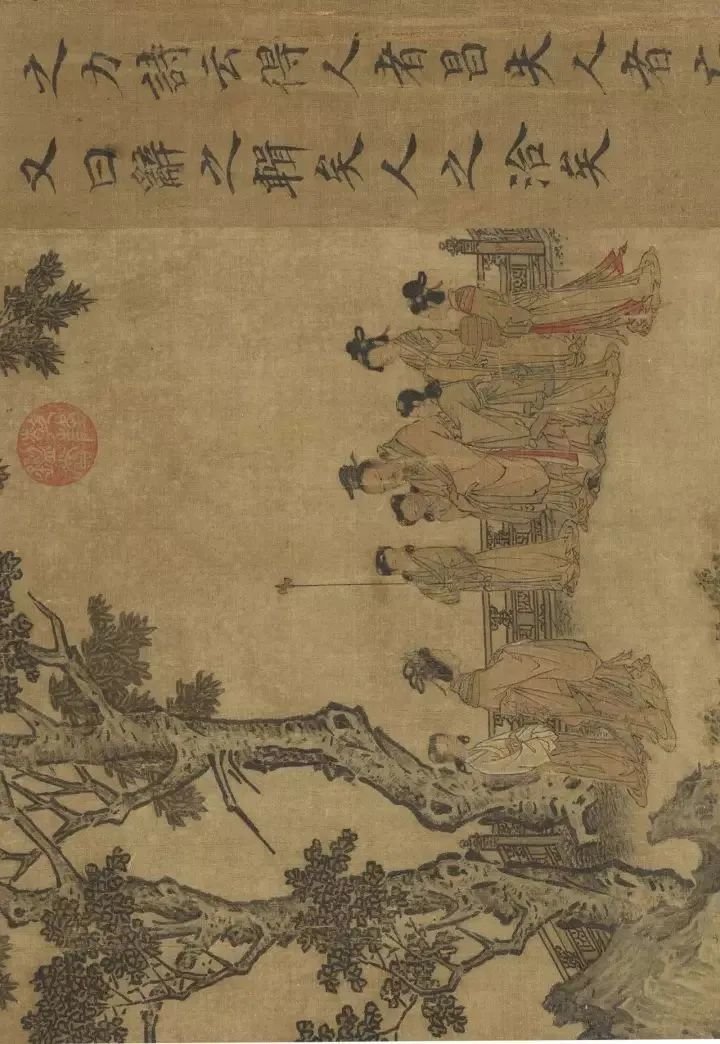 之力詩云得人者昌失人者
又曰辭之輯矣人之洽矣